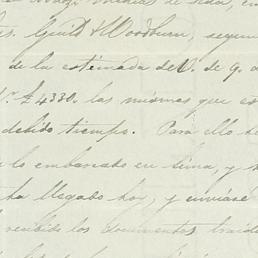 Guild & Woodburn, segun
de la estimada de V. de 9. a
£4330. las mismas que es
debido tiempo. Para ello
lo embarcado en Lima, y
ha llegado hoy, y enviáse
recibido los documentos